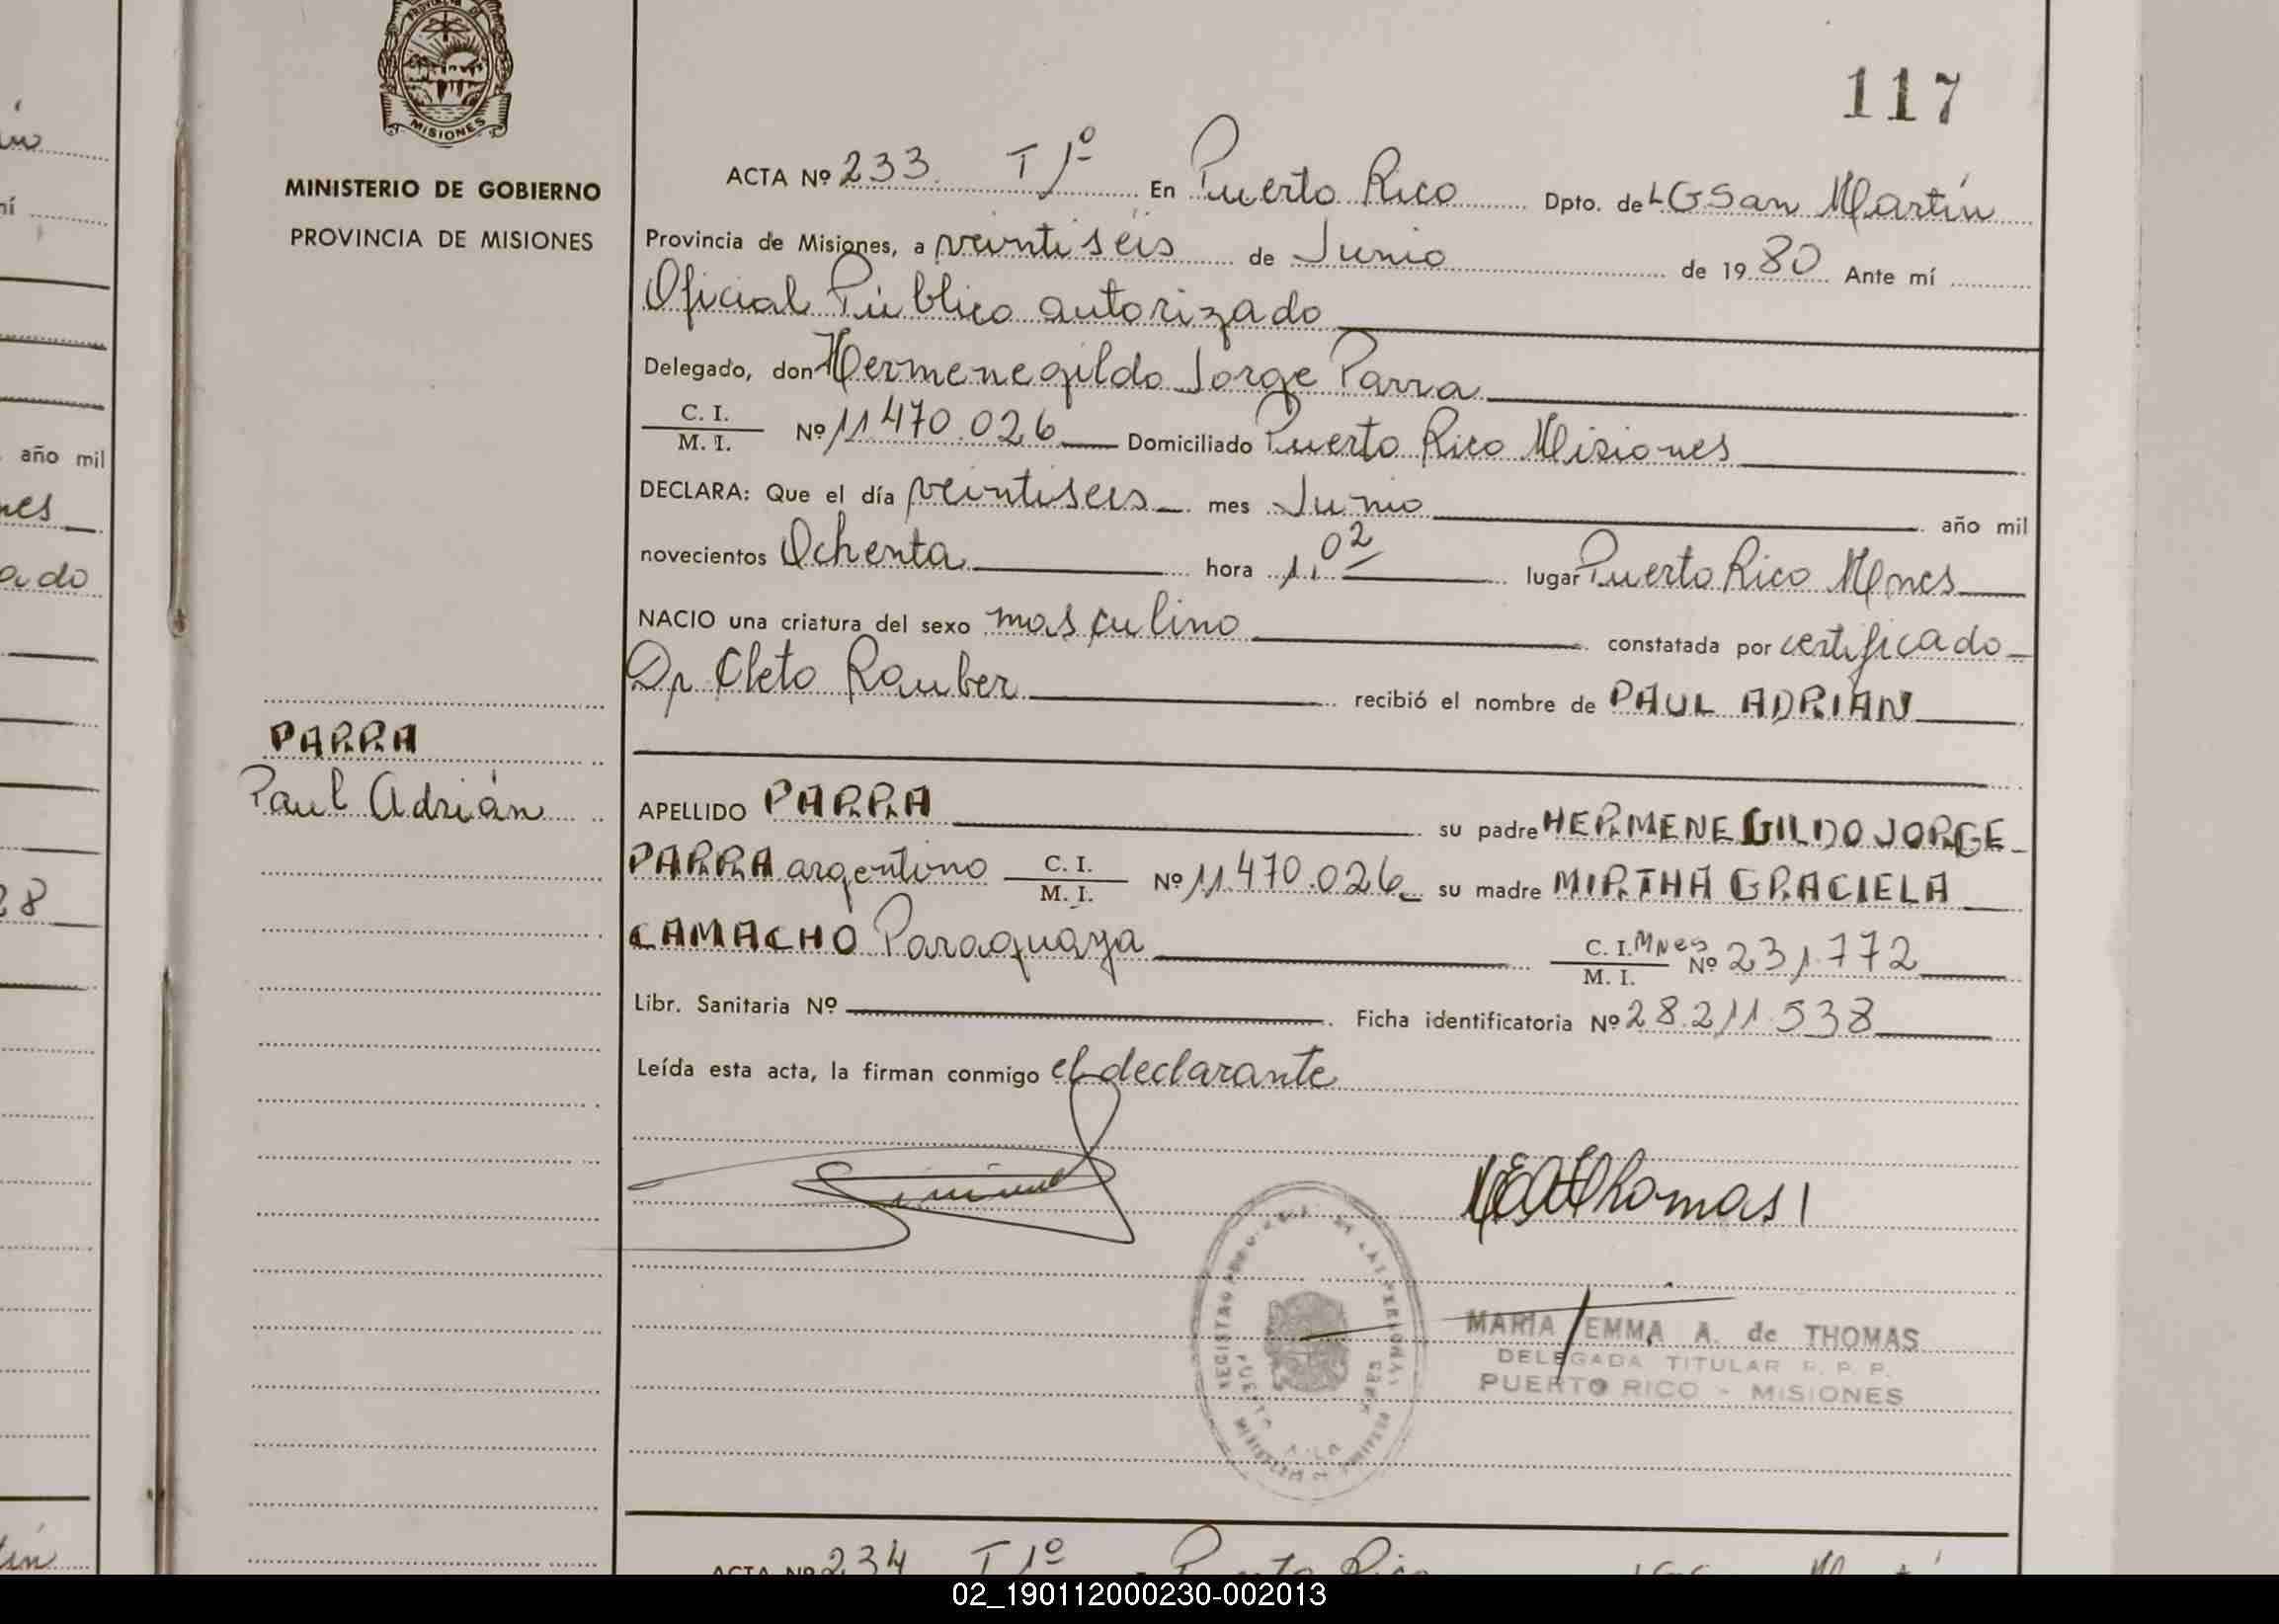 117
MISIONES
MINISTERIO DE GOBIERNO
PROVINCIA DE MISIONES
PARRA
Paul Adrián
ACTA Nº 233 T 1º En Puerto Rico Dpto. de LGSan Martín
Provincia de Misiones, a veintiséis de Junio de 1980 Ante mí
Oficial Público autorizado
Delegado, don Hermenegildo Jorge Parra
C. I.
M. I. Nº 11470.026 Domiciliado Puerto Rico Misiones
DECLARA: Que el día veintiseis mes Junio año mil
novecientos Ochenta hora 1,02 lugar Puerto Rico Mnes
NACIO una criatura del sexo masculino constatada por certificado
Dr Cleto Rauber recibió el nombre de PAUL ADRIAN
APELLIDO PARRA su padre HERMENEGILDO JORGE
PARRA argentino C. I. M. I. Nº 11.470.026 su madre MIRTHA GRACIELA
CAMACHO Paraguaya C. I. Mnes M. I. Nº 231.772
Libr. Sanitaria Nº Ficha identificatoria Nº 28.211.538
Leída esta acta, la firman conmigo el declarante
MEAThomas
MARIA EMMA A. de THOMAS
DELEGADA TITULAR R. P. P.
PUERTO RICO - MISIONES
ACTA Nº 234 T 1º Puerto Rico
año mil
nes
ado
28
02_190112000230-002013